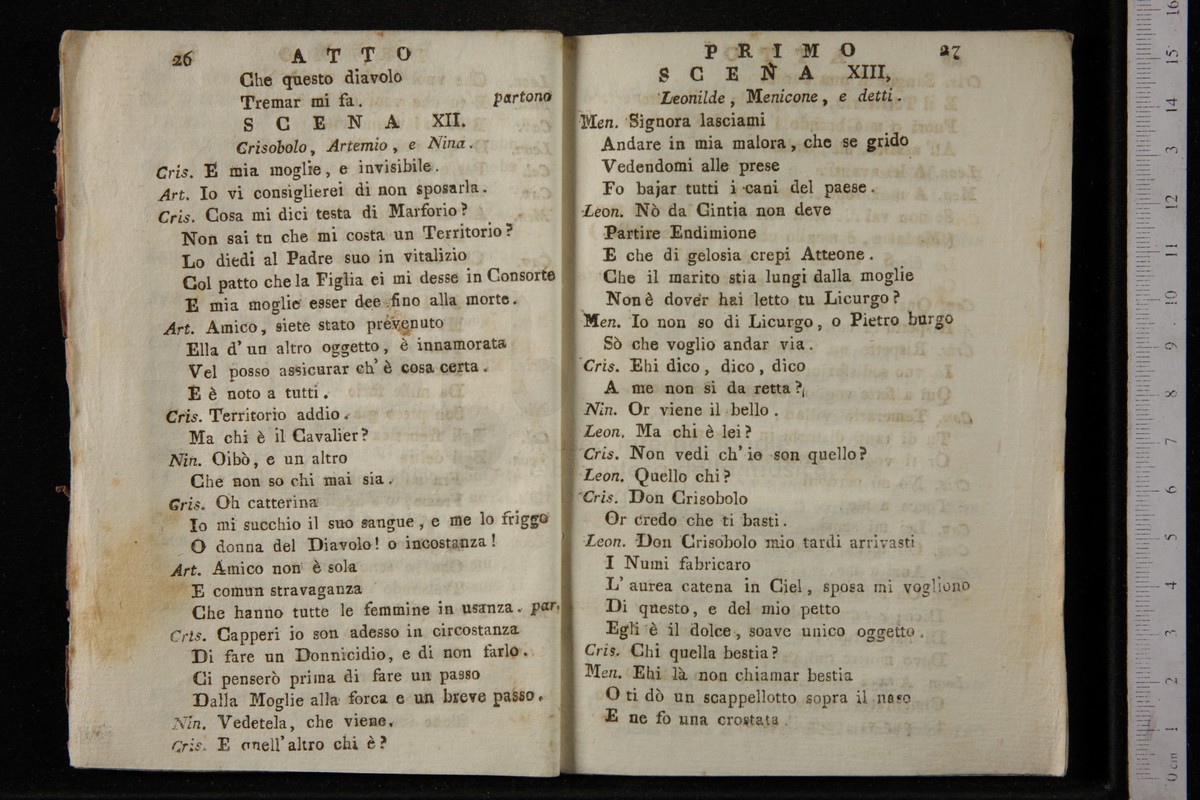 26 ATTO
Che questo diavolo
Tremar mi fa. partono
SCENA XII.
Crisobolo, Artemio, e Nina.
Cris. E mia moglie, e invisibile.
Art. Io vi consiglierei di non sposarla.
Cris. Cosa mi dici testa di Marforio?
Non sai tn che mi costa un Territorio?
Lo diedi al Padre suo in vitalizio
Col patto che la Figlia ei mi desse in Consorte
E mia moglie esser dee fino alla morte.
Art. Amico, siete stato prevenuto
Ella d' un altro oggetto, è innamorata
Vel posso assicurar ch' è cosa certa.
E è noto a tutti.
Cris. Territorio addio.
Ma chi è il Cavalier?
Nin. Oibò, e un altro
Che non so chi mai sia.
Cris. Oh catterina
Io mi succhio il suo sangue, e me lo friggo
O donna del Diavolo! o incostanza!
Art. Amico non è sola
E comun stravaganza
Che hanno tutte le femmine in usanza. par.
Cris. Capperi io son adesso in circostanza
Di fare un Donnicidio, e di non farlo.
Ci penserò prima di fare un passo
Dalla Moglie alla forca e un breve passo.
Nin. Vedetela, che viene.
Cris. E quell' altro chi è?
PRIMO 27
SCENA XIII,
Leonilde, Menicone, e detti.
Men. Signora lasciami
Andare in mia malora, che se grido
Vedendomi alle prese
Fo bajar tutti i cani del paese.
Leon. Nò da Cintia non deve
Partire Endimione
E che di gelosia crepi Atteone.
Che il marito stia lungi dalla moglie
Non è dover hai letto tu Licurgo?
Men. Io non so di Licurgo, o Pietro burgo
Sò che voglio andar via.
Cris. Ehi dico, dico, dico
A me non si da retta?
Nin. Or viene il bello.
Leon. Ma chi è lei?
Cris. Non vedi ch' io son quello?
Leon. Quello chi?
Cris. Don Crisobolo
Or credo che ti basti.
Leon. Don Crisobolo mio tardi arrivasti
I Numi fabricaro
L' aurea catena in Ciel, sposa mi vogliono
Di questo, e del mio petto
Egli è il dolce, soave unico oggetto.
Cris. Chi quella bestia?
Men. Ehi là non chiamar bestia
O ti dò un scappellotto sopra il naso
E ne fò una crostata.
0 cm 1 2 3 4 5 6 7 8 9 10 11 12 13 14 15 16